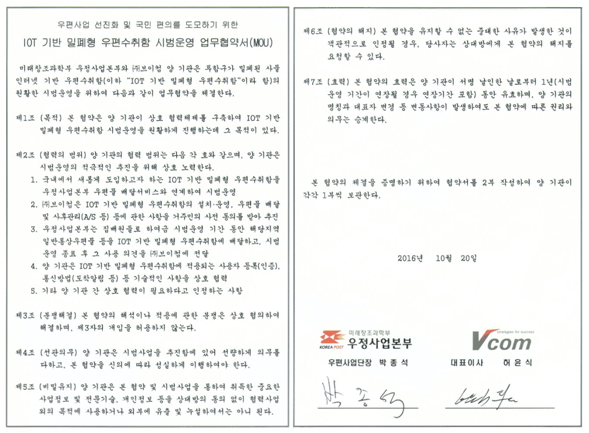 우편사업 선진화 및 국민 편의를 도모하기 위한
IOT 기반 밀폐형 우편수취함 시범운영 업무협약서(MOU)
미래창조과학부 우정사업본부와 ㈜브이컴 양 기관은 투함구가 밀폐된 사물
인터넷 기반 우편수취함(이하 "IOT 기반 밀폐형 우편수취함"이라 함)의
원활한 시범운영을 위하여 다음과 같이 업무협약을 체결한다.
제1조 (목적) 본 협약은 양 기관이 상호 협력체제를 구축하여 IOT 기반
밀폐형 우편수취함 시범운영을 원활하게 진행하는데 그 목적이 있다.
제2조 (협약의 범위) 양 기관의 협력 범위는 다음 각 호와 같으며, 양 기관은
시범운영의 적극적인 추진을 위해 상호 노력한다.
1. 국내에서 새롭게 도입하고자 하는 IOT 기반 밀폐형 우편수취함을
우정사업본부 우편물 배달서비스와 연계하여 시범운영
2. ㈜브이컴은 IOT 기반 밀폐형 우편수취함의 설치·운영, 우편물 배달
및 사후관리(A/S 등) 등에 관한 사항을 거주민의 사전 동의를 받아 추진
3. 우정사업본부는 집배원들로 하여금 시범운영 기간 동안 해당지역
일반통상우편물 등을 IOT 기반 밀폐형 우편수취함에 배달하고, 시범
운영 종료 후 그 사용 의견을 ㈜브이컴에 전달
4. 양 기관은 IOT 기반 밀폐형 우편수취함에 적용되는 사용자 등록(인증),
통신방법(도착알림 등) 등 기술적인 사항을 상호 협력
5. 기타 양 기관 간 상호 협력이 필요하다고 인정하는 사항
제3조 (분쟁해결) 본 협약의 해석이나 적용에 관한 분쟁은 상호 협의하여
해결하며, 제3자의 개입을 허용하지 않는다.
제4조 (선관의무) 양 기관은 시범사업을 추진함에 있어 선량하게 의무를
다하고, 본 협약을 신의에 따라 성실하게 이행하여야 한다.
제5조 (비밀유지) 양 기관은 본 협약 및 시범사업을 통하여 취득한 중요한
사업정보 및 전문기술, 개인정보 등을 상대방의 동의 없이 협력사업
외의 목적에 사용하거나 외부에 유출 및 누설하여서는 아니 된다.
제6조 (협약의 해지) 본 협약을 유지할 수 없는 중대한 사유가 발생한 것이
객관적으로 인정될 경우, 당사자는 상대방에게 본 협약의 해지를
요청할 수 있다.
제7조 (효력) 본 협약의 효력은 양 기관이 서명 날인한 날로부터 1년(시범
운영 기간이 연장될 경우 연장기간 포함) 동안 유효하며, 양 기관의
명칭과 대표자 변경 등 변동사항이 발생하여도 본 협약에 따른 권리와
의무는 승계한다.
본 협약의 체결을 증명하기 위하여 협약서를 2부 작성하여 양 기관이
각각 1부씩 보관한다.
2016년 10월 20일
KOREA POST
미래창조과학부
우정사업본부
strategies for success
Vcom
우편사업단장 박 종 석
대표이사 허 윤 식
박종석